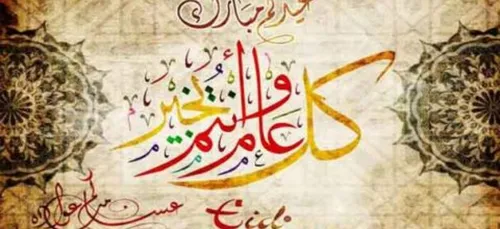 عيدكم مبارك
كل عام وأنتم بخير
عساكم من عواده
Eid